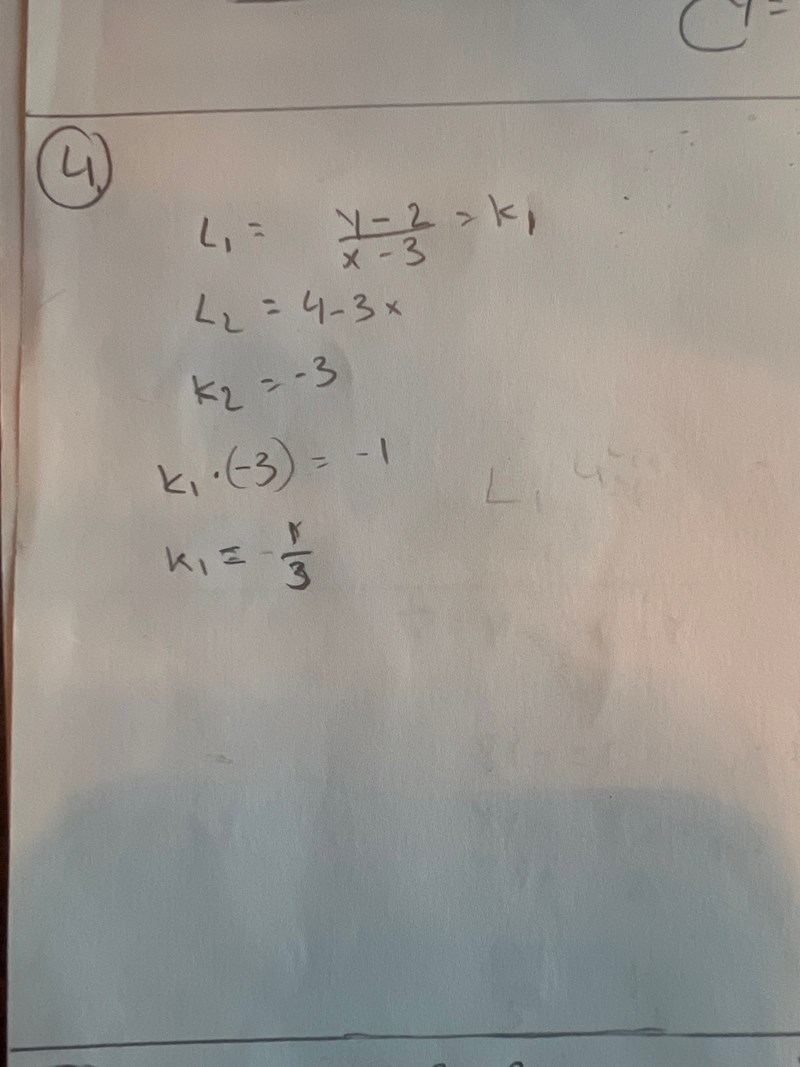 y =
4
L₁ = (y - 2)/(x - 3) = k₁
L₂ = 4 - 3x
k₂ = -3
k₁ · (-3) = -1
k₁ = -1/3